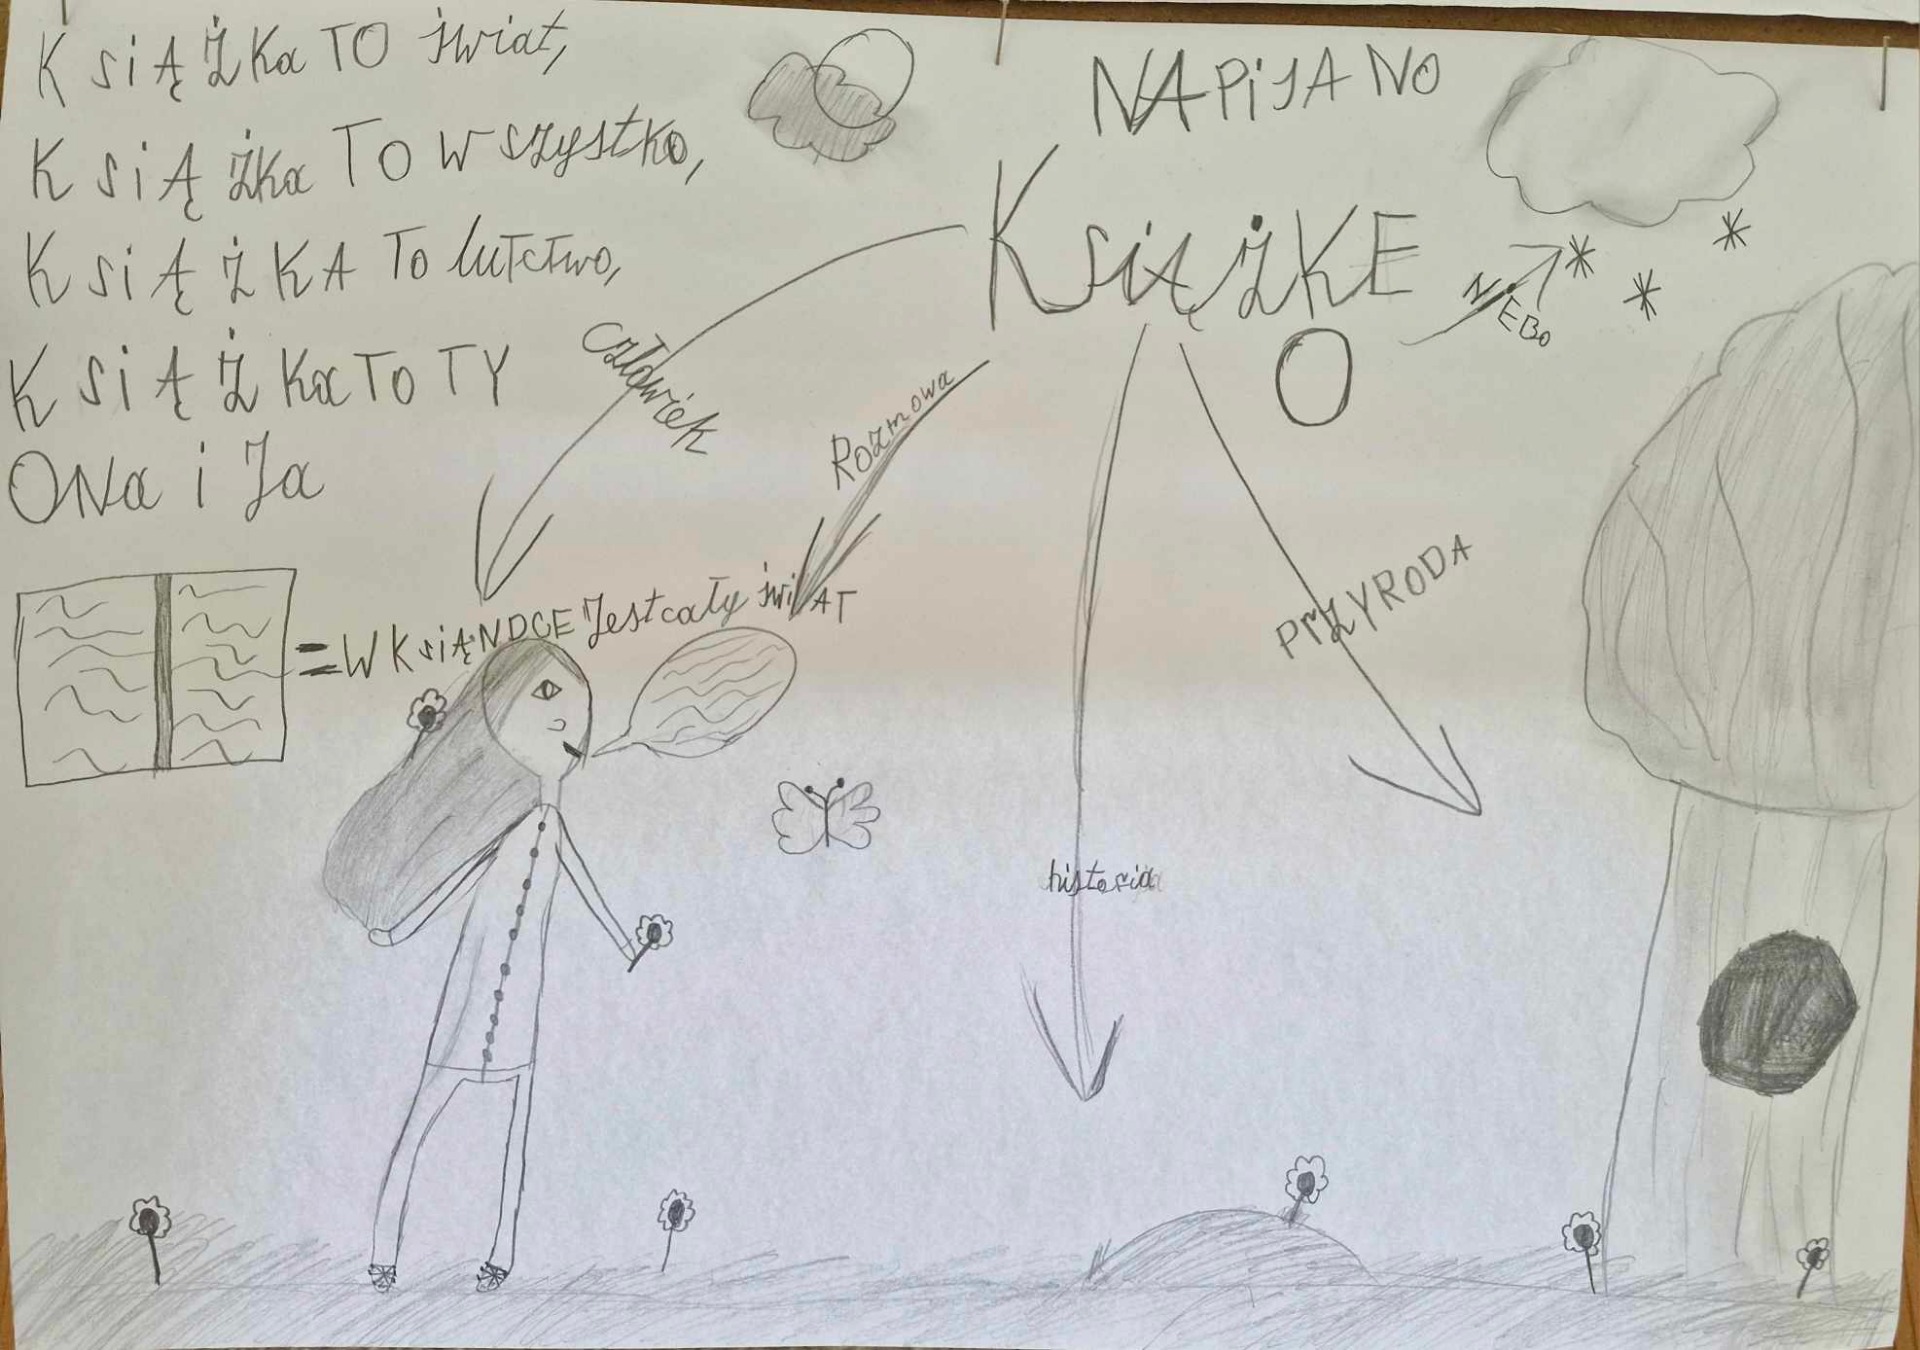 KSiĄŻKa TO świat,
KSiĄżka TO wszystko,
KSiĄŻKA To lutctwo,
KSiĄŻKa TO TY
ONa i Ja
NAPiSANO
KsiążKE
O
NIEBO
człowiek
Rozmowa
PrzYRODA
historia
= W KsiĄNDCE Jest cały świAT